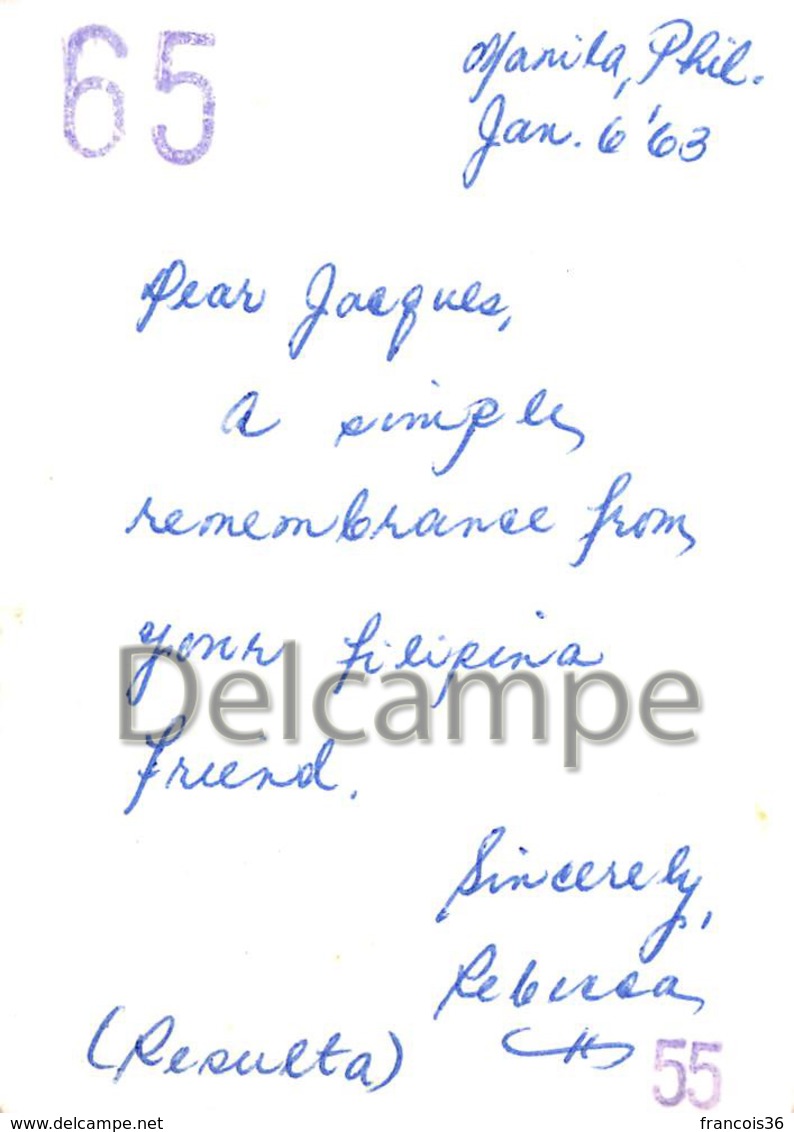 65
Manila, Phil.
Jan. 6 '63
Dear Jacques,
A simple
remembrance from
your filipina
friend.
Delcampe
Sincerely,
Rebecca
(Resulta)
55
www.delcampe.net
francois36